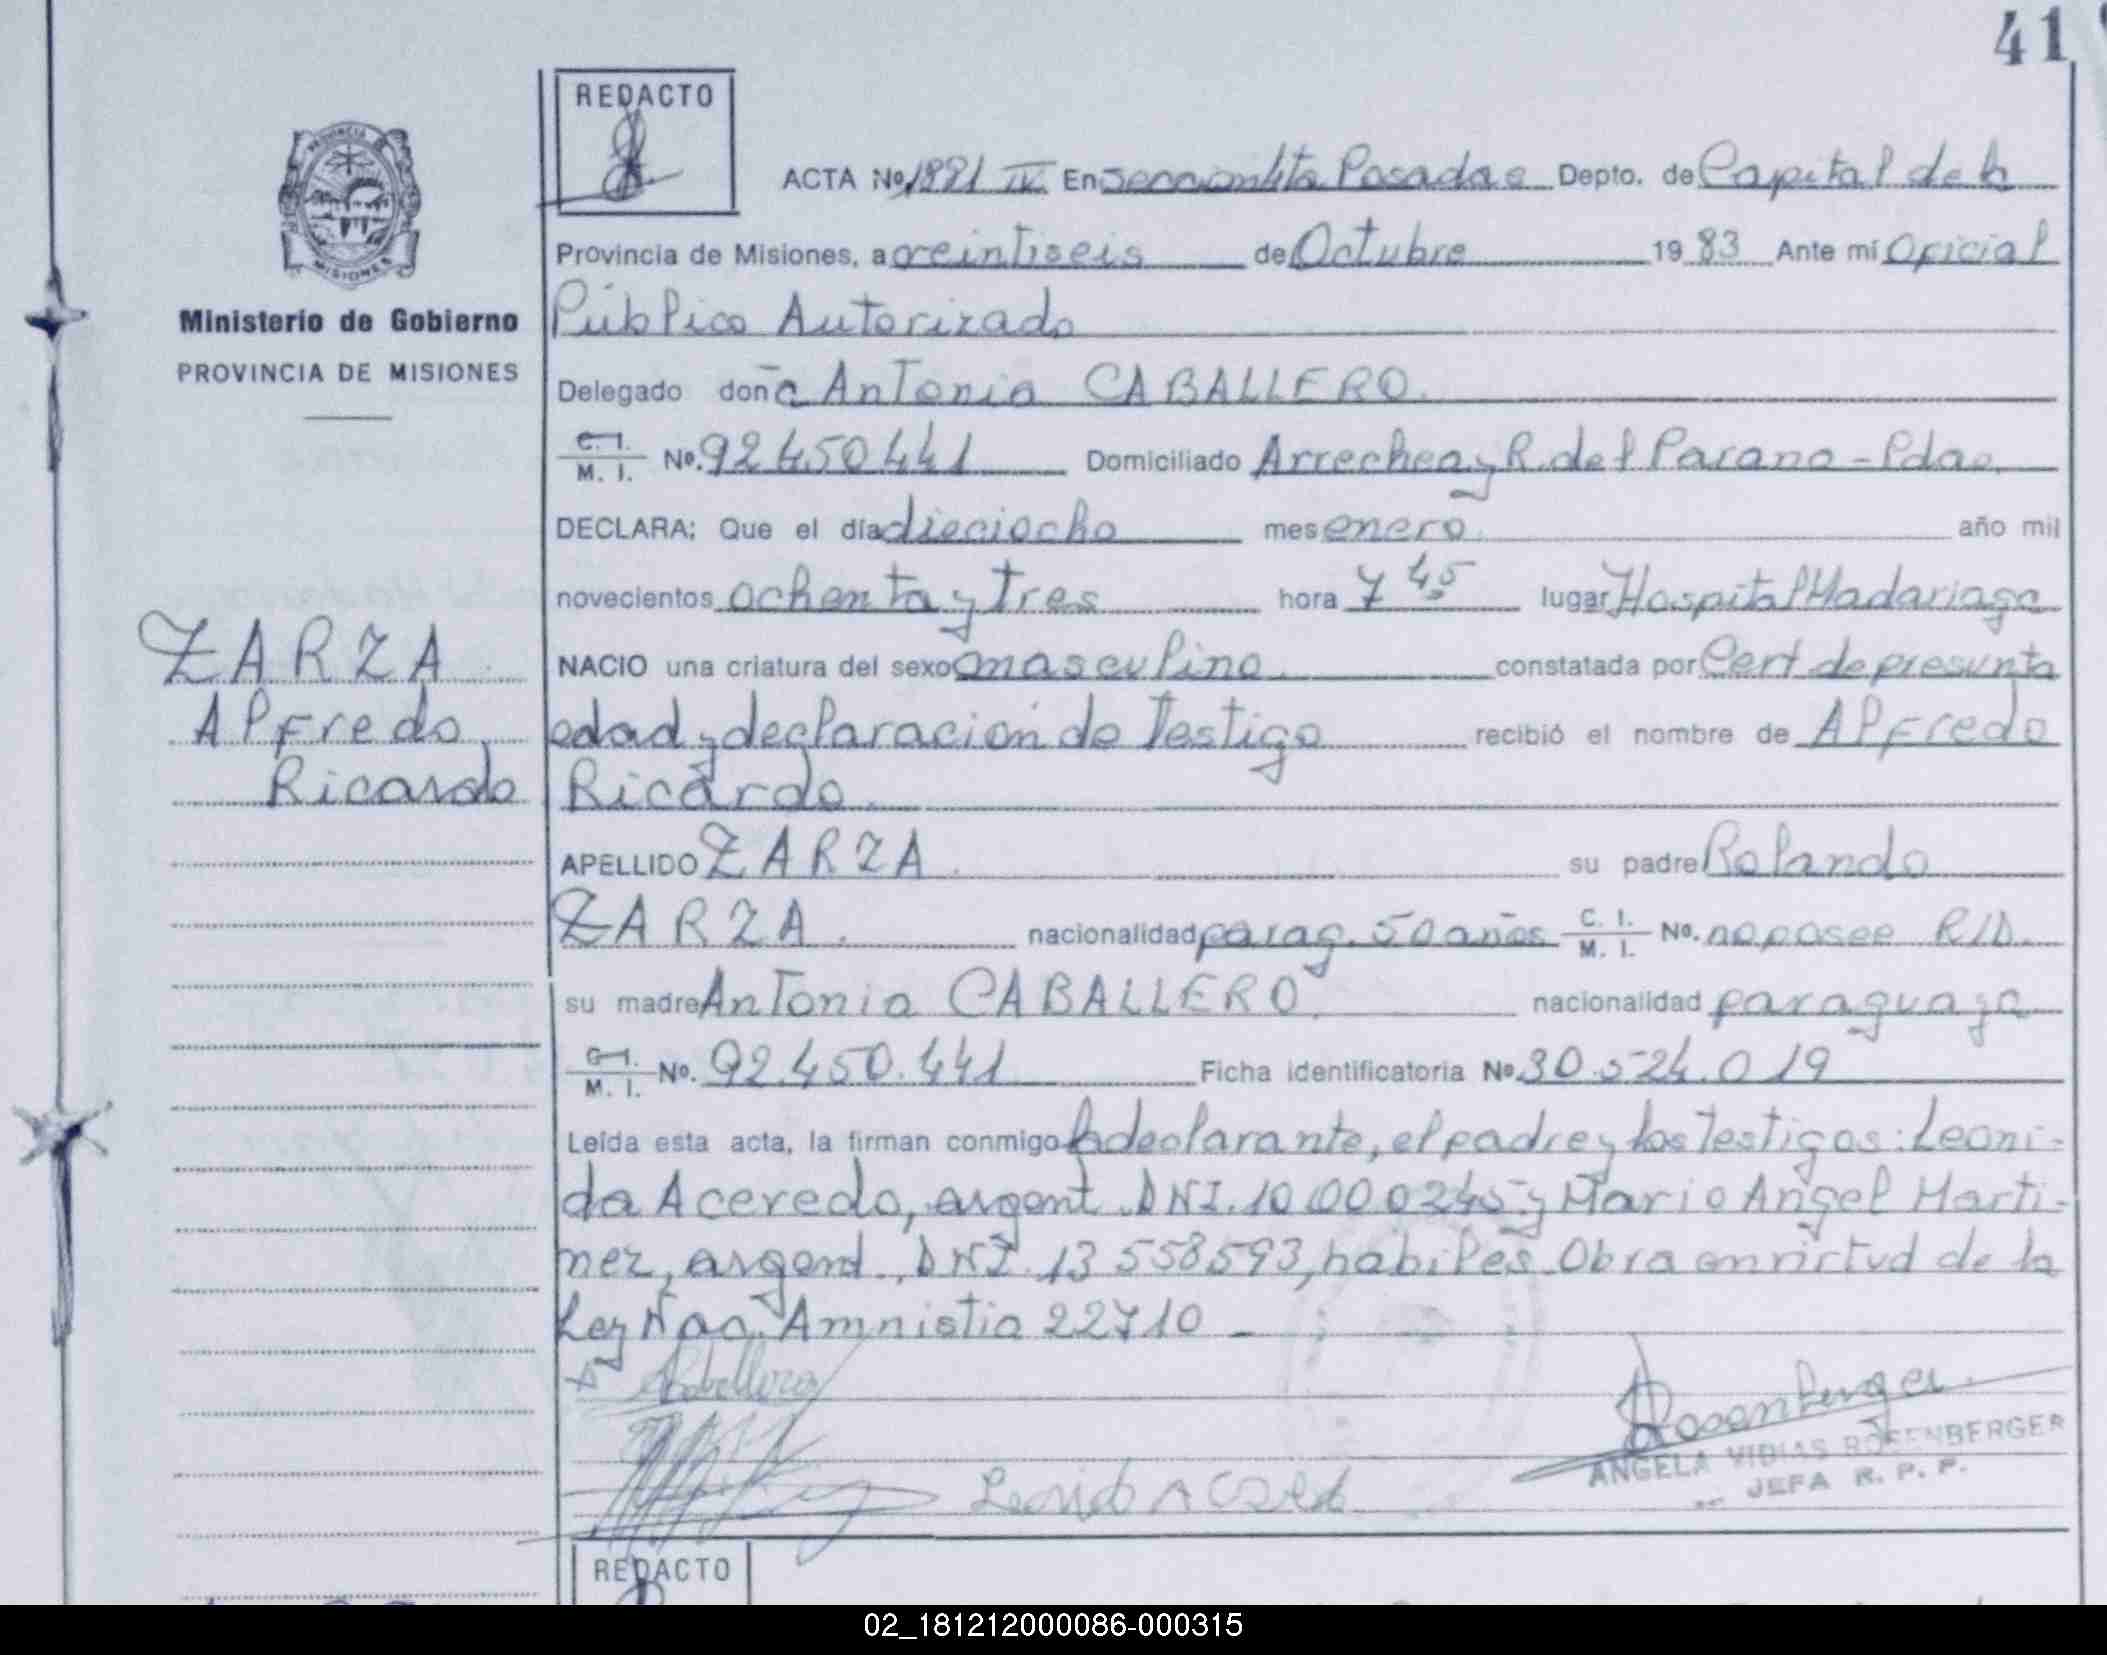 41
REDACTO
ACTA Nº 1991 IV En Sección 4ta Posadas Depto. de Capital de la
Provincia de Misiones, a veintiseis de Octubre 19 83 Ante mí Oficial
Público Autorizado
Ministerio de Gobierno
PROVINCIA DE MISIONES
Delegado doña Antonia CABALLERO.
C. I. / M. I. Nº. 92450441 Domiciliado Arrechea y R. del Parana - Pdas.
DECLARA: Que el día dieciocho mes enero. año mil
novecientos ochenta y tres hora 7 45 lugar Hospital Madariaga
ZARZA
Alfredo
Ricardo
NACIO una criatura del sexo masculino. constatada por Cert de presunta
edad y declaración de Testigo recibió el nombre de Alfredo
Ricardo.
APELLIDO ZARZA. su padre Rolando
ZARZA. nacionalidad parag. 50 años C. I. / M. I. Nº. no posee R/D.
su madre Antonia CABALLERO. nacionalidad paraguaya
C. I. / M. I. Nº. 92.450.441 Ficha identificatoria Nº 30.524.019
Leída esta acta, la firman conmigo la declarante, el padre y los Testigos: Leoni-
da Acevedo, argent. DNI. 10.000245 y Mario Angel Marti-
nez, argent. DNI. 13 558593, hábiles. Obra en virtud de la
Ley Nac. Amnistia 22710 -
A Caballero
Rosenberger
ANGELA VIDIAS ROSENBERGER
JEFA R. P. P.
REDACTO
02_181212000086-000315